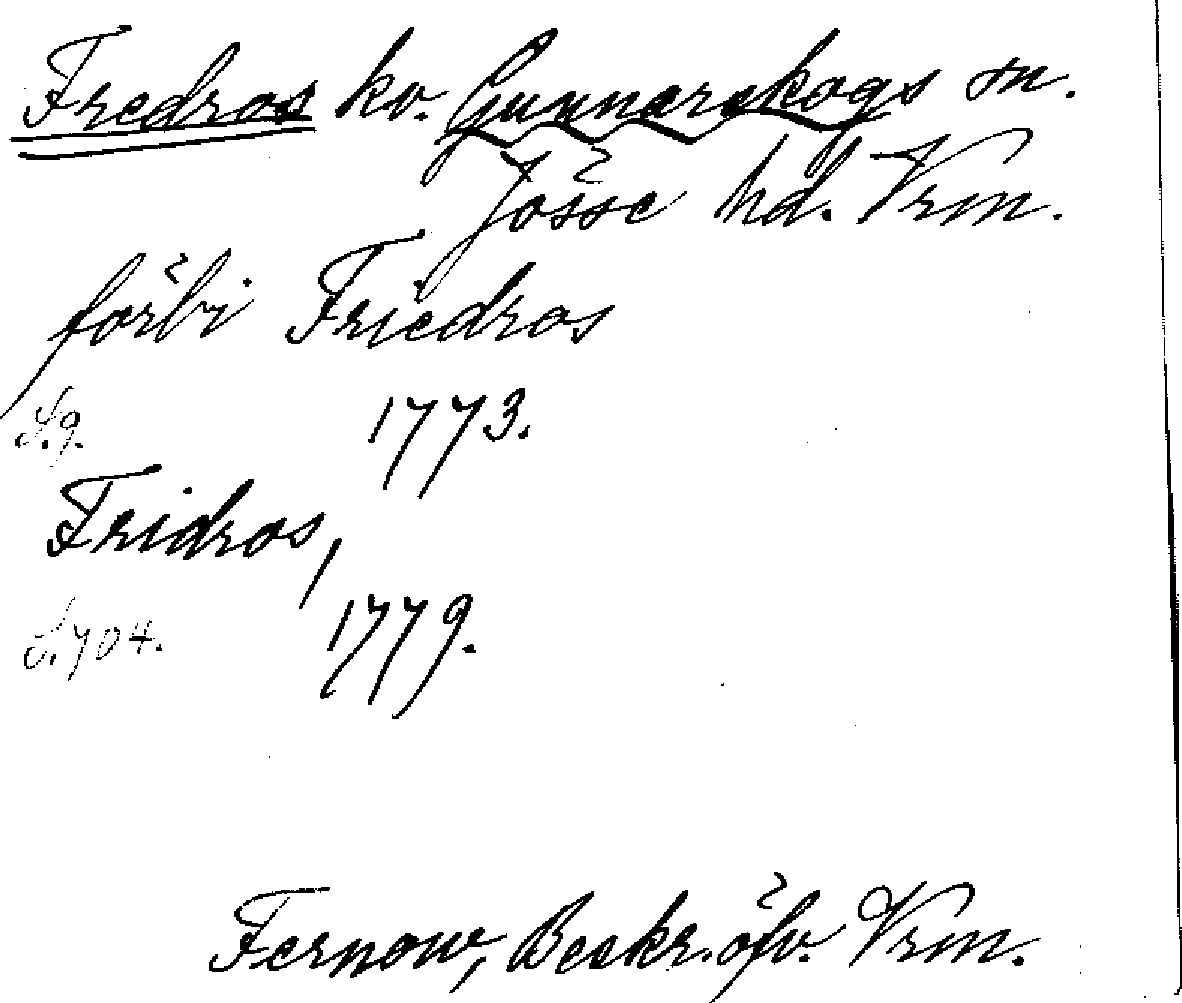 Fredros kv. Gunnarskogs sn.
Jösse hd. Vrm.
förbi Friedros
S.9. 1773.
Fridros,
S.704. 1779.
Fernow, Beskr. öfv. Vrm.